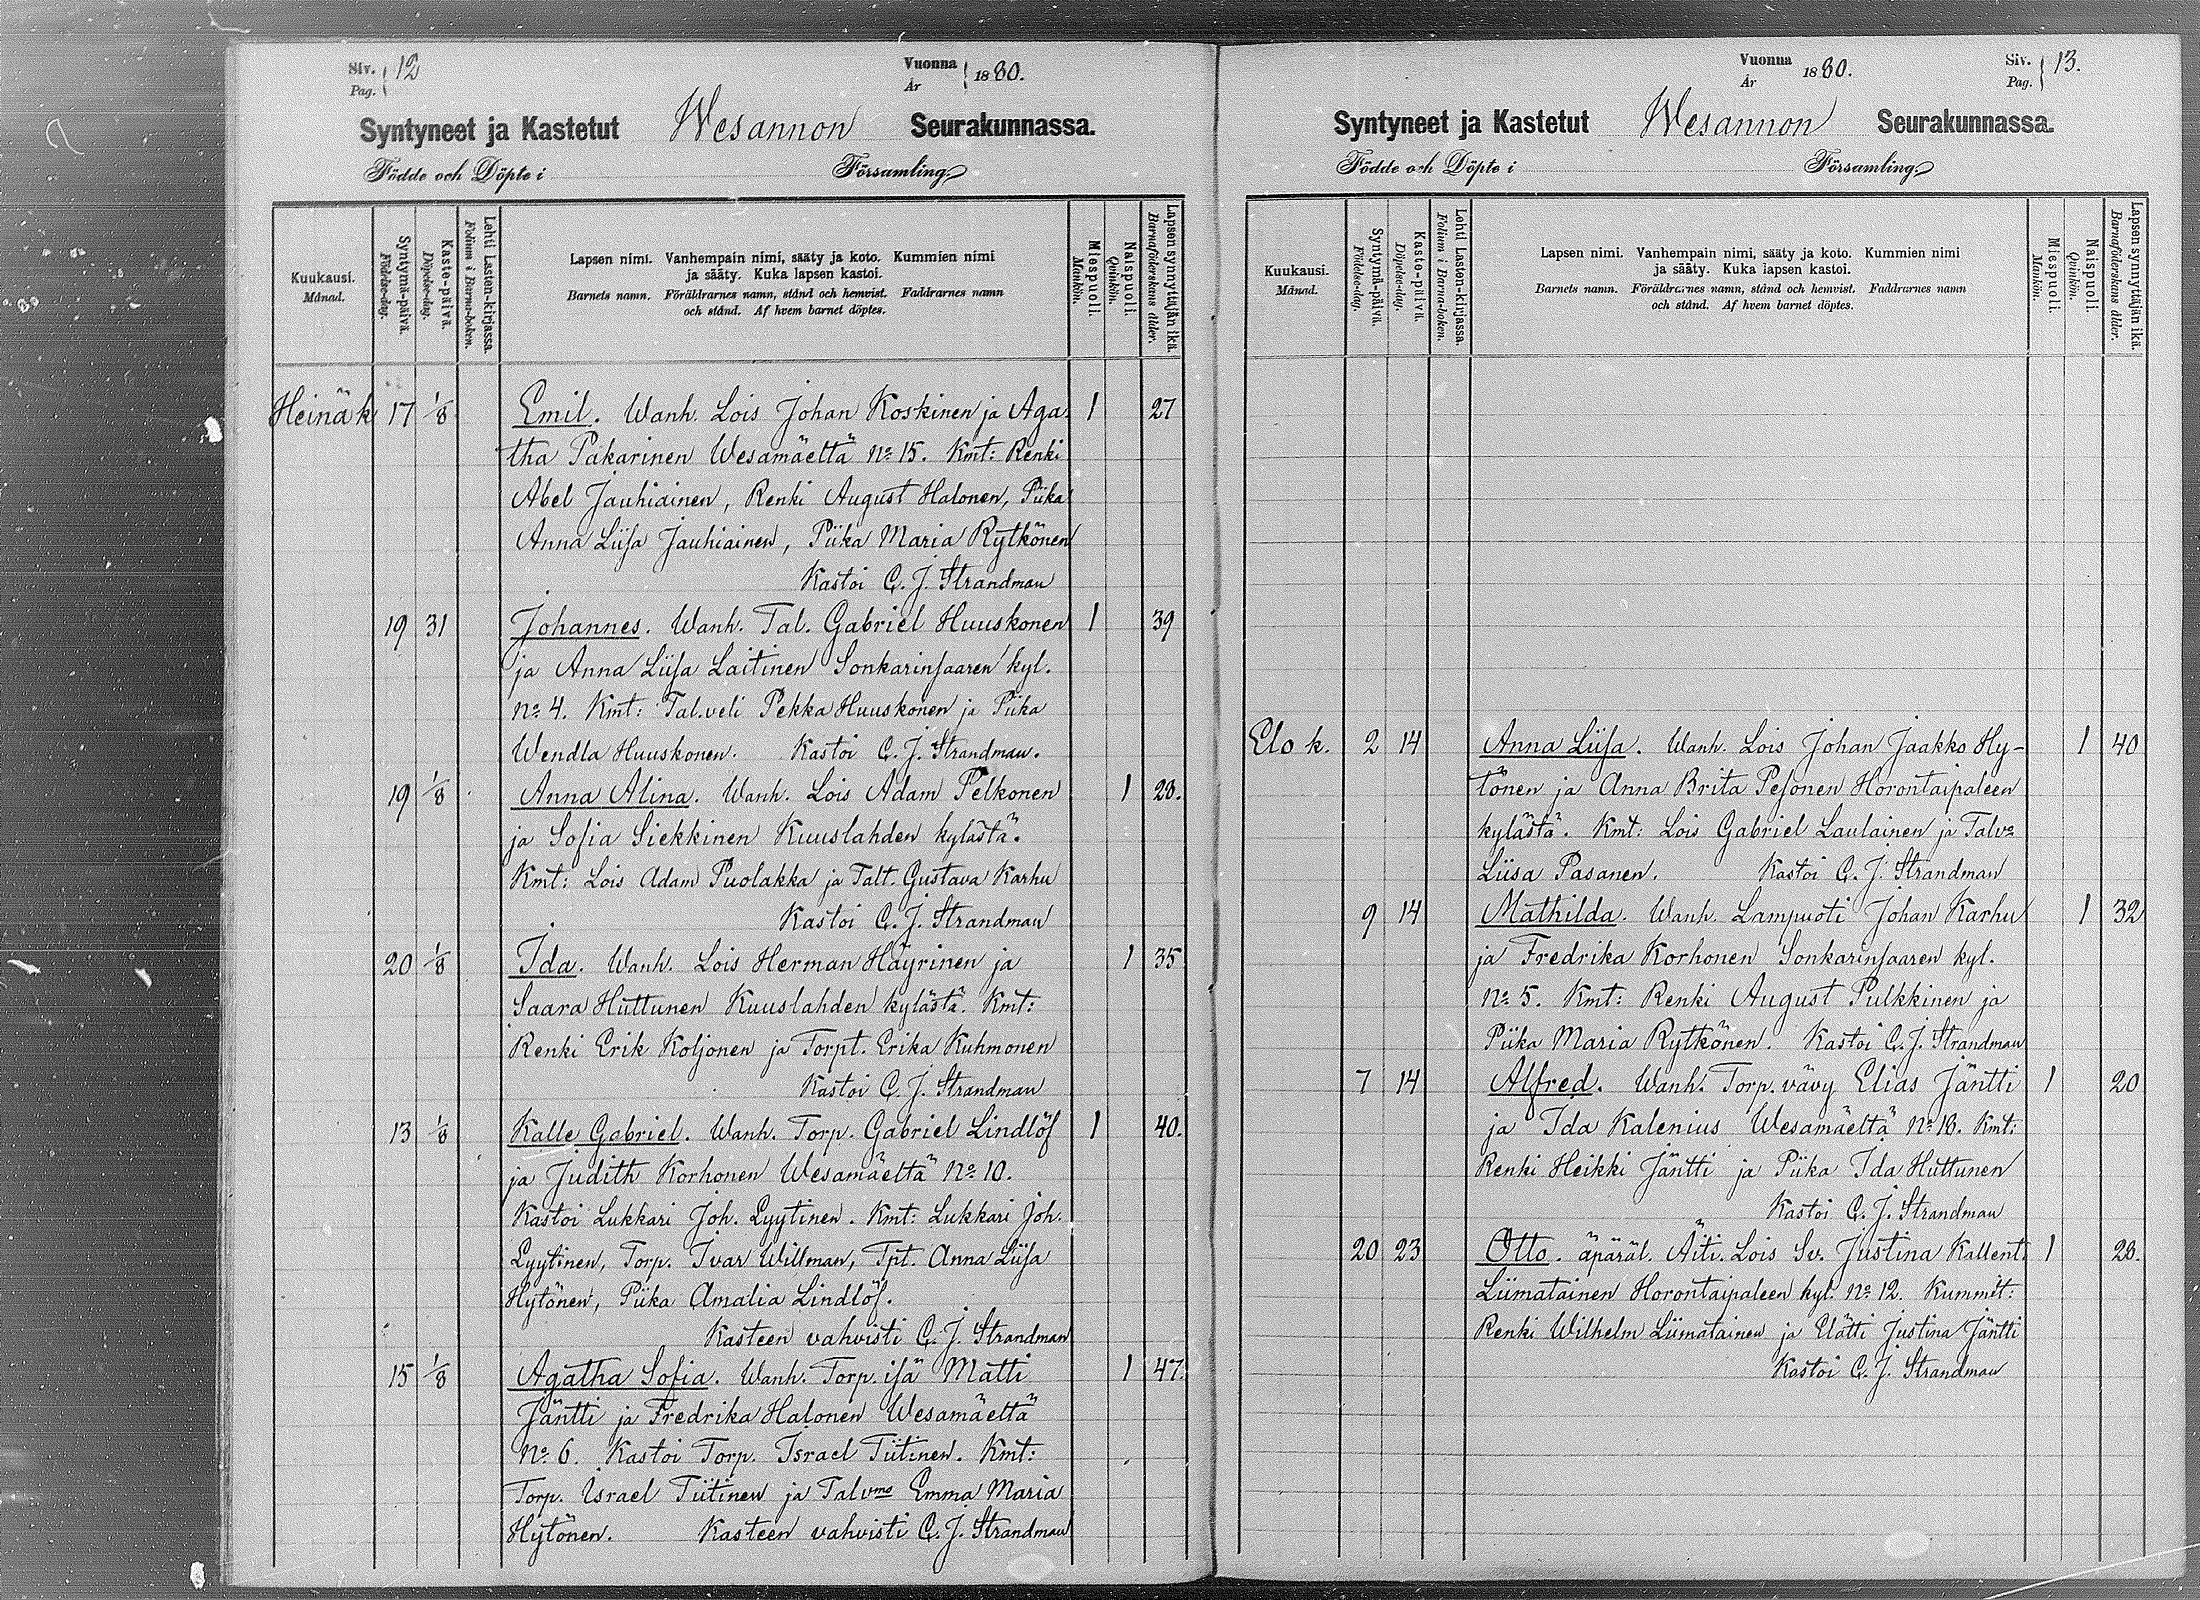 Siv. 12
Pag.
Vuonna 1880.
År
Syntyneet ja Kastetut Wesannon Seurakunnassa.
Födde och Döpte i Församling.
Kuukausi.
Månad.
Syntymä-päivä.
Födelse-dag.
Kaste-päivä.
Döpelse-dag.
Lehti Lasten-kirjassa.
Folium i Barna-boken.
Lapsen nimi. Vanhempain nimi, sääty ja koto. Kummien nimi
ja sääty. Kuka lapsen kastoi.
Barnets namn. Föräldrarnes namn, stånd och hemvist. Faddrarnes namn
och stånd. Af hvem barnet döptes.
Miespuoli.
Mankön.
Naispuoli.
Qvinkön.
Lapsen synnyttäjän ikä.
Barnaföderskans ålder.
Heinäk 17 1/8 Emil. Wanh. Lois Johan Koskinen ja Aga- 1 27
tha Pakarinen Wesamäeltä No 15. Kmt: Renki
Abel Jauhiainen, Renki August Halonen, Piika
Anna Liisa Jauhiainen, Piika Maria Rytkönen
Kastoi C. J. Strandman
19 31 Johannes. Wanh. Tal. Gabriel Huuskonen 1 39
ja Anna Liisa Laitinen Sonkarinsaaren kyl.
No 4. Kmt: Tal.veli Pekka Huuskonen ja Piika
Wendla Huuskonen. Kastoi C. J. Strandman.
19 1/8 Anna Alina. Wanh. Lois Adam Pelkonen 1 28.
ja Sofia Siekkinen Kuuslahden kylästä.
Kmt: Lois Adam Puolakka ja Talt. Gustava Karhu
Kastoi C. J. Strandman
20 1/8 Ida. Wanh. Lois Herman Häyrinen ja 1 35
Saara Huttunen Kuuslahden kylästä. Kmt:
Renki Erik Koljonen ja Torpt. Erika Kuhmonen
Kastoi C. J. Strandman
13 1/8 Kalle Gabriel. Wanh. Torp. Gabriel Lindlöf 1 40.
ja Judith Korhonen Wesamäeltä No 10.
Kastoi Lukkari Joh. Lyytinen. Kmt: Lukkari Joh.
Lyytinen, Torp. Ivar Willman, Tpt. Anna Liisa
Hytönen, Piika Amalia Lindlöf.
Kasteen vahvisti C. J. Strandman
15 1/8 Agatha Sofia. Wanh. Torp. isä Matti 1 47.
Jäntti ja Fredrika Halonen Wesamäeltä
No 6. Kastoi Torp. Israel Tiitinen. Kmt:
Torp. Israel Tiitinen ja Talvmo Emma Maria
Hytönen. Kasteen vahvisti C. J. Strandman
Vuonna 1880.
År
Siv. 13.
Pag.
Syntyneet ja Kastetut Wesannon Seurakunnassa.
Födde och Döpte i Församling.
Kuukausi.
Månad.
Syntymä-päivä.
Födelse-dag.
Kaste-päivä.
Döpelse-dag.
Lehti Lasten-kirjassa.
Folium i Barna-boken.
Lapsen nimi. Vanhempain nimi, sääty ja koto. Kummien nimi
ja sääty. Kuka lapsen kastoi.
Barnets namn. Föräldrarnes namn, stånd och hemvist. Faddrarnes namn
och stånd. Af hvem barnet döptes.
Miespuoli.
Mankön.
Naispuoli.
Qvinkön.
Lapsen synnyttäjän ikä.
Barnaföderskans ålder.
Elo k. 2 14 Anna Liisa. Wanh. Lois Johan Jaakko Hy- 1 40
tönen ja Anna Brita Pesonen Horontaipaleen
kylästä. Kmt: Lois Gabriel Laulainen ja Talvo
Liisa Pasanen. Kastoi C. J. Strandman
9 14 Mathilda. Wanh. Lampuoti Johan Karhu 1 32
ja Fredrika Korhonen Sonkarinsaaren kyl.
No 5. Kmt: Renki August Pulkkinen ja
Piika Maria Rytkönen. Kastoi C. J. Strandman
7 14 Alfred. Wanh. Torp. vävy Elias Jäntti 1 20
ja Ida Kalenius Wesamäeltä No 18. Kmt:
Renki Heikki Jäntti ja Piika Ida Huttunen
Kastoi C. J. Strandman
20 23 Otto. äpäräl. Äiti. Lois Sv. Justina Kallent. 1 28.
Liimatainen Horontaipaleen kyl. No 12. Kummit:
Renki Wilhelm Liimatainen ja Elätti Justina Jäntti
Kastoi C. J. Strandman